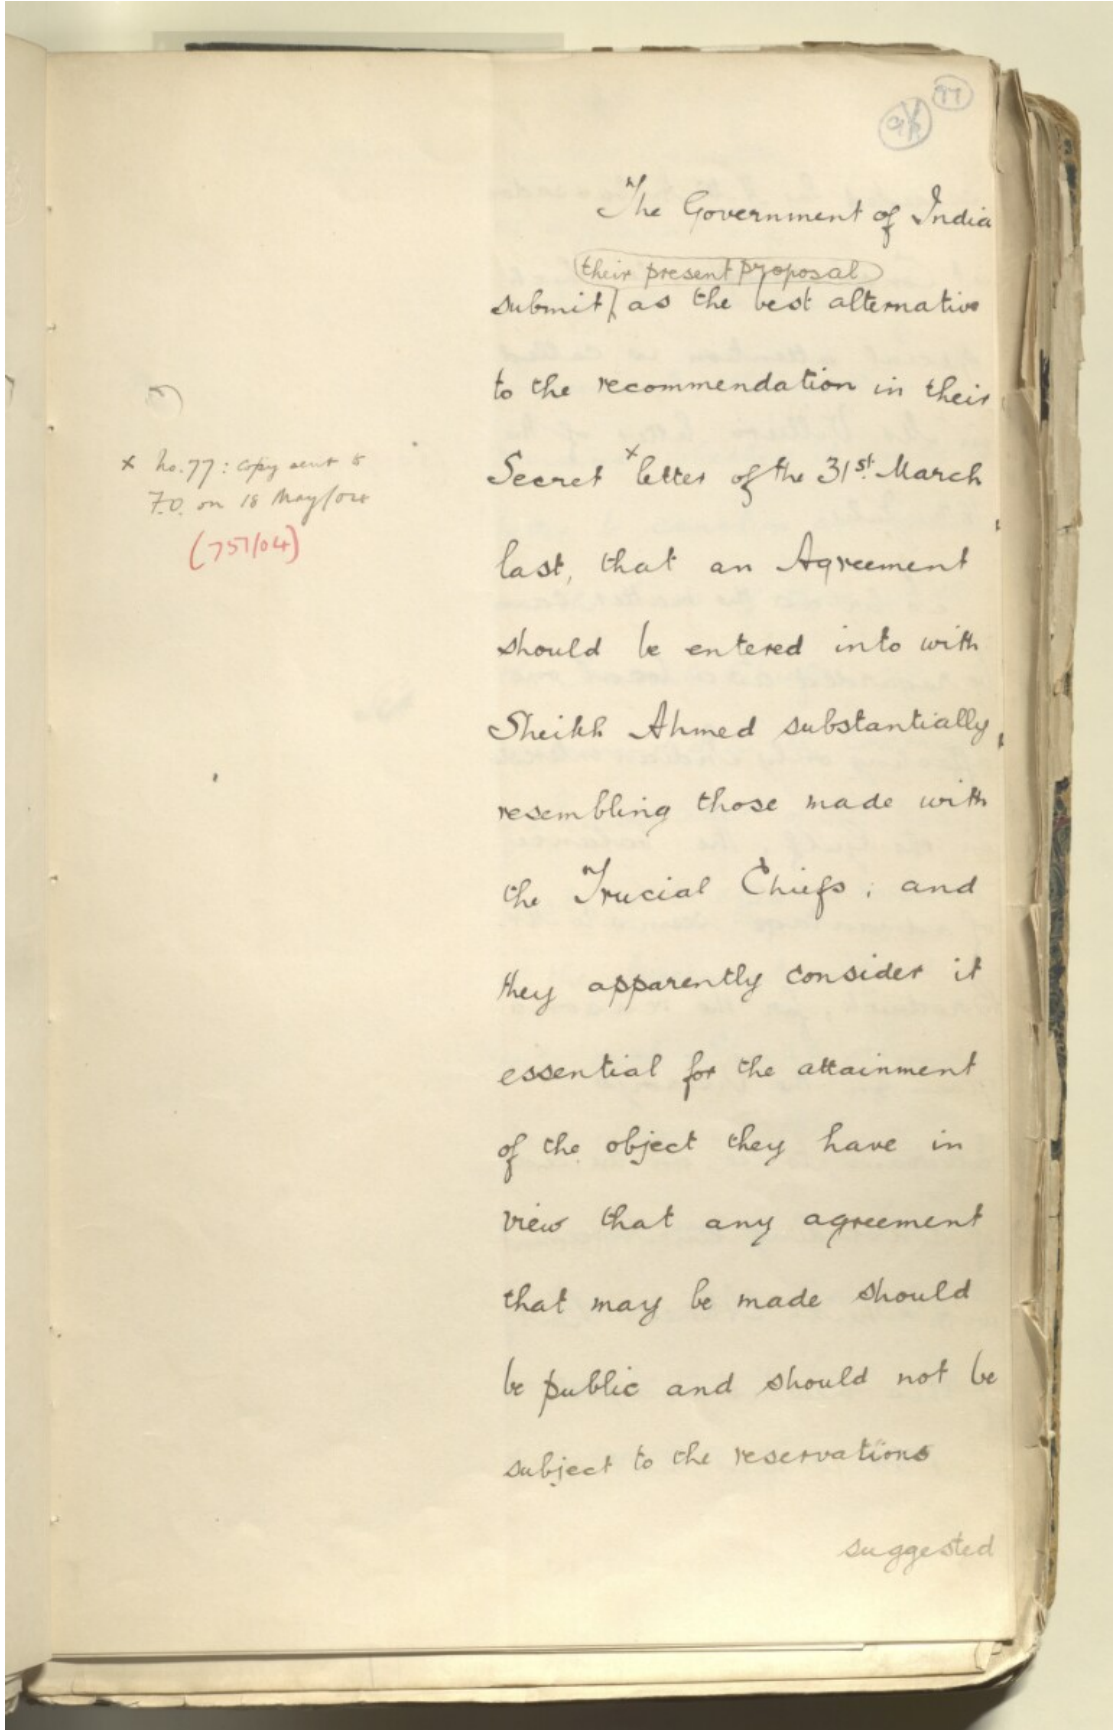 77
The Government of India
their present proposal
submit / as the best alternative
to the recommendation in their
Secret x letter of the 31st. March
last, that an Agreement
should be entered into with
Sheikh Ahmed substantially
resembling those made with
the Trucial Chiefs; and
they apparently consider it
essential for the attainment
of the object they have in
view that any agreement
that may be made should
be public and should not be
subject to the reservations
suggested
x No. 77: copy sent to
F.O. on 18 May/04
(757/04)